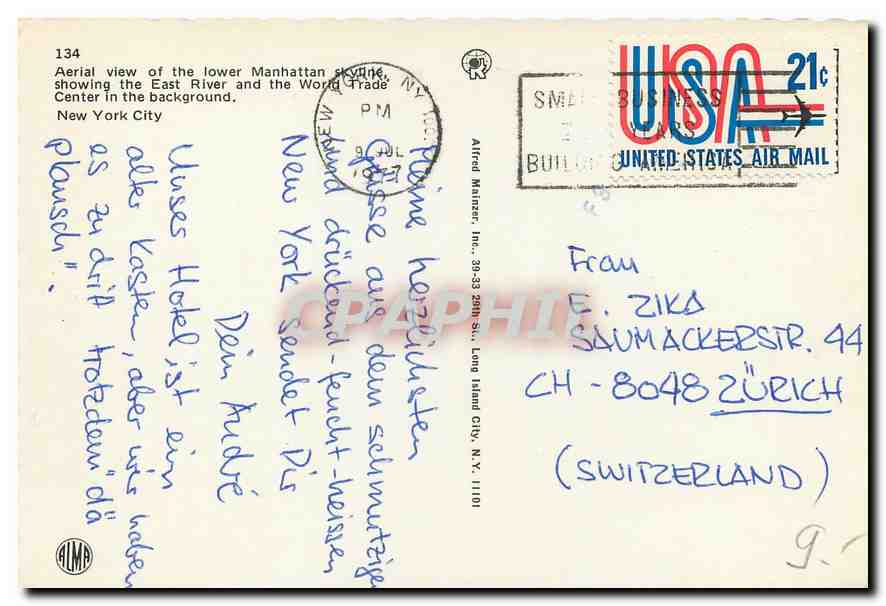 134
Aerial view of the lower Manhattan skyline,
showing the East River and the World Trade
Center in the background.
New York City
NEW YORK, NY
PM
9 JUL
1977
SMALL BUSINESS
YEARS
BUILDING AMERICA
USA 21c
UNITED STATES AIR MAIL
Alfred Mainzer, Inc., 39-33 29th St., Long Island City, N.Y. 11101
Meine herzlichsten
Grüsse aus dem schmutzigen
und drückend-feucht-heissen
New York sendet Dir
Dein André
Unses Hotel ist ein
alter Kasten, aber wir haben
es zu dritt trotzdem "dä
plausch".
Frau
E. ZIKA
SAUMACKERSTR. 44
CH - 8048 ZÜRICH
(SWITZERLAND)
9.-
ALMA
CPAPHIL